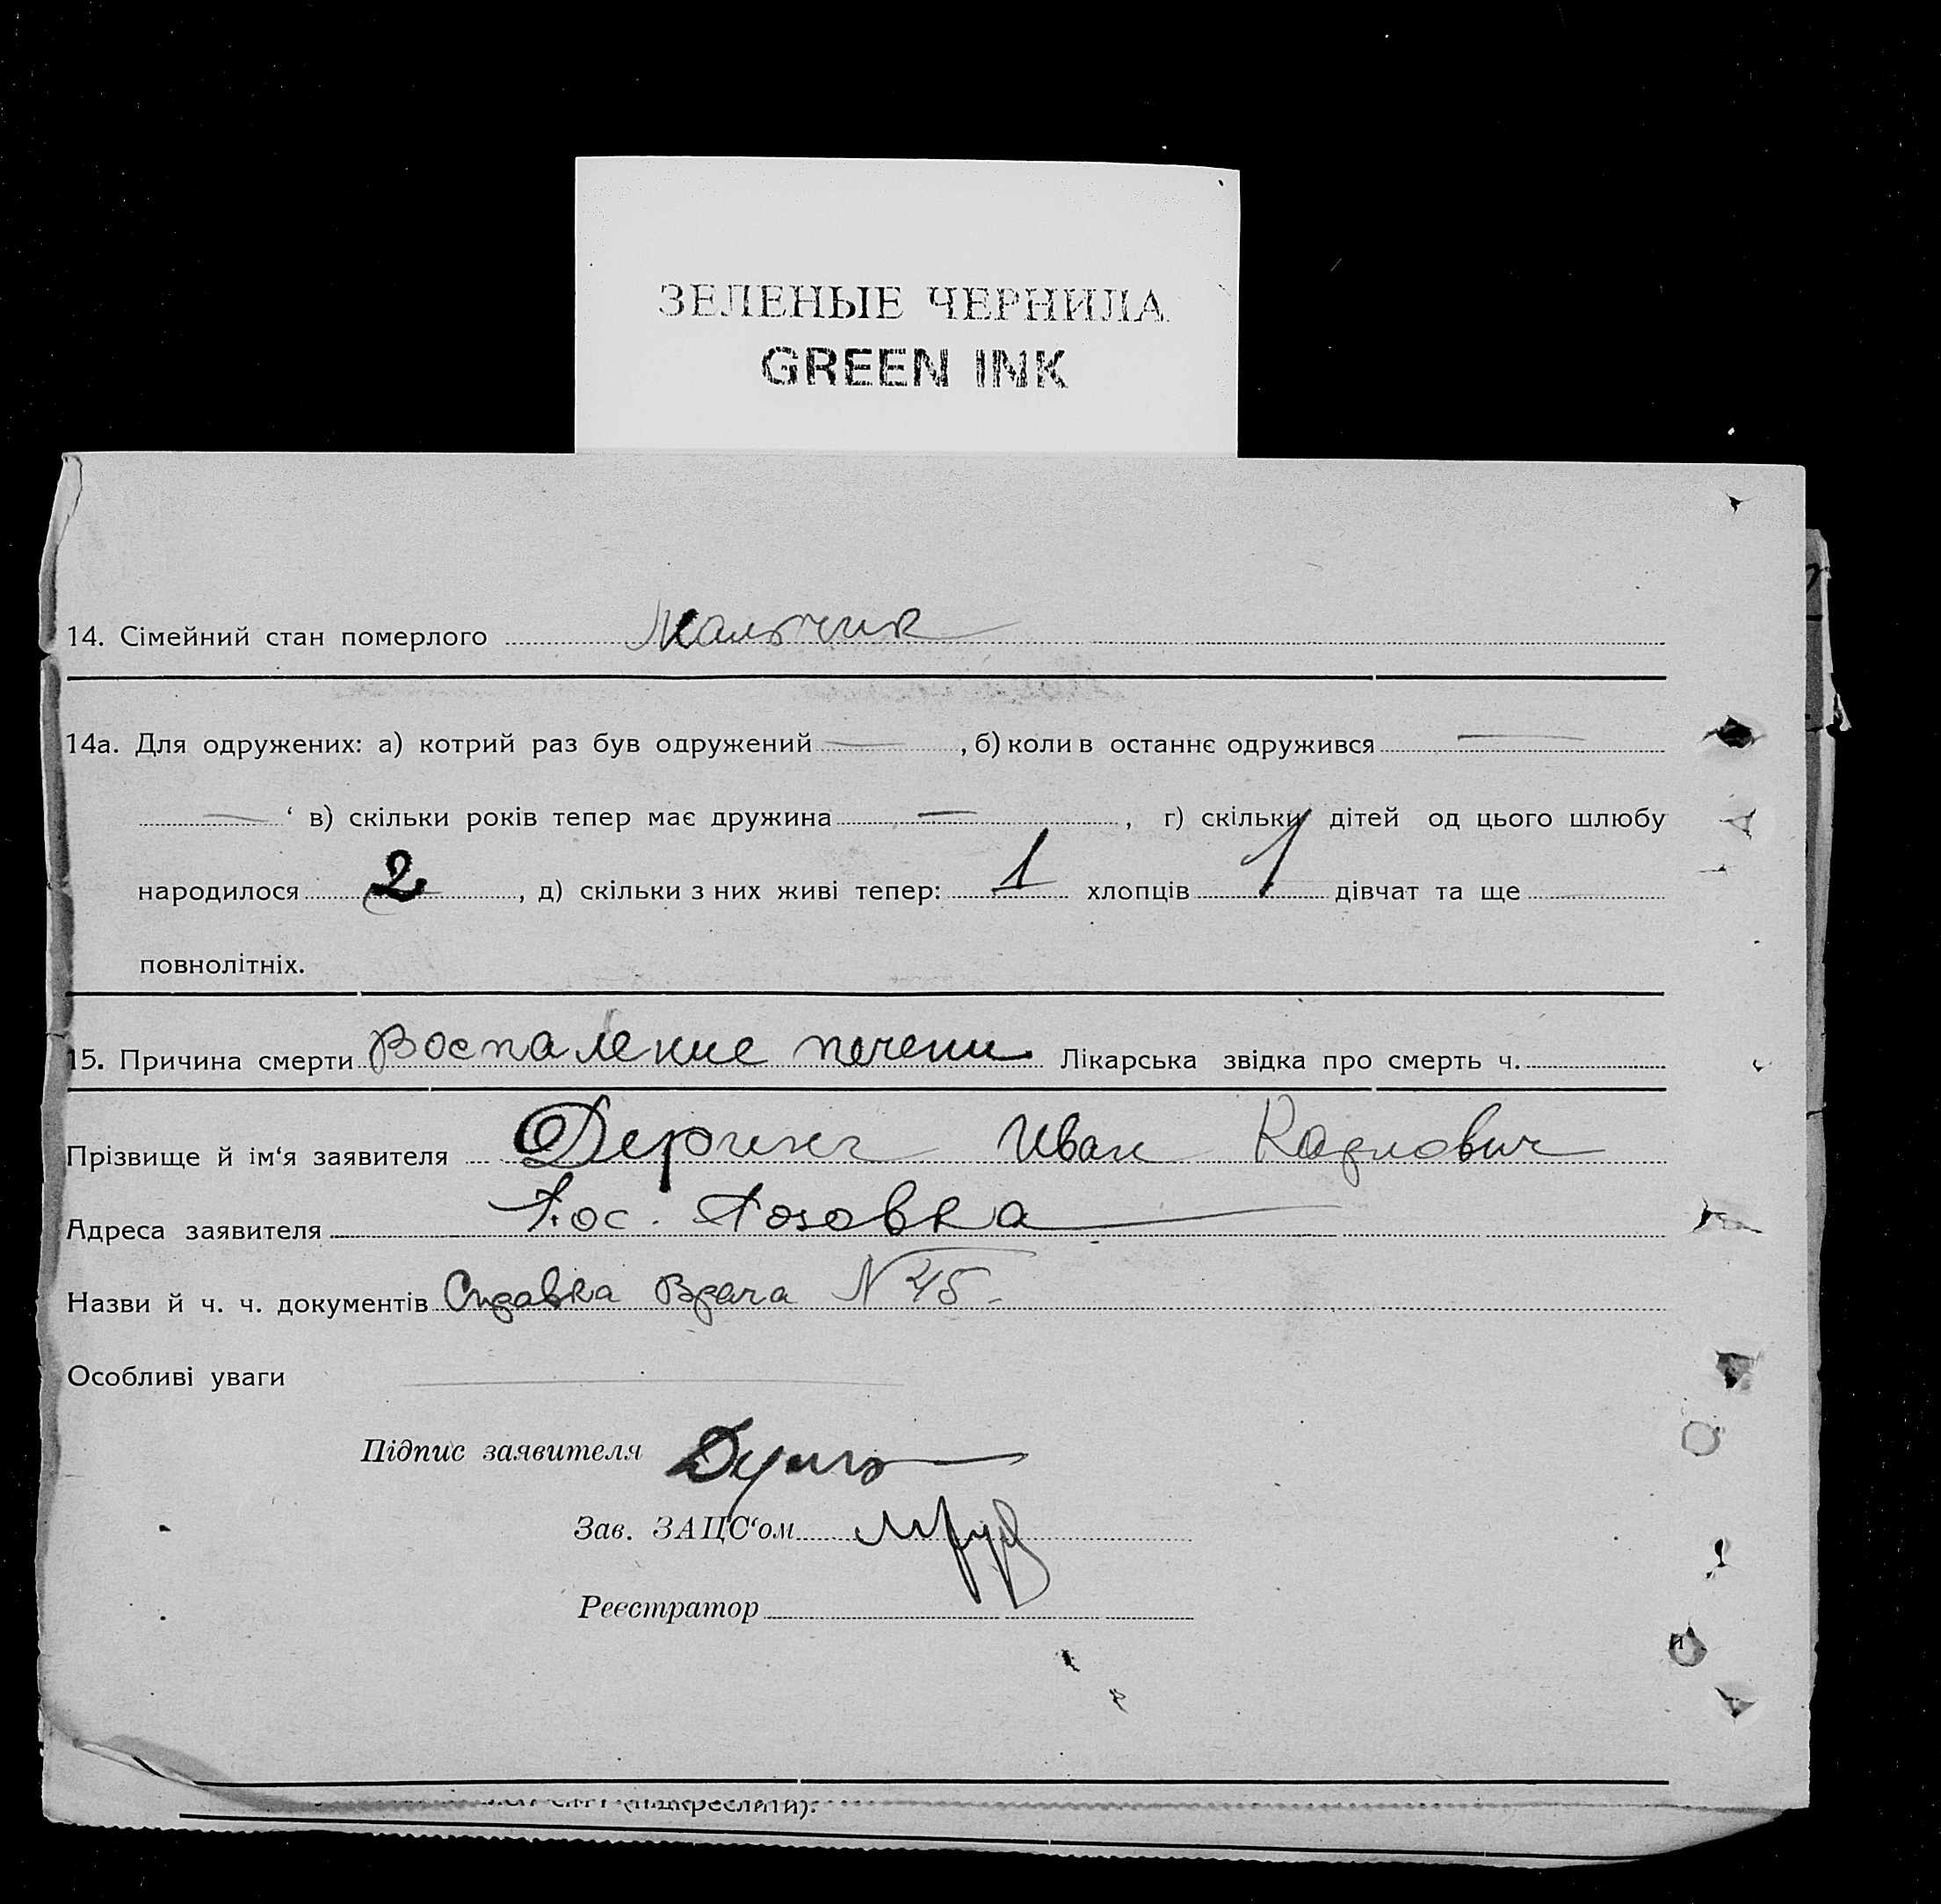 ЗЕЛЕНЫЕ ЧЕРНИЛА
GREEN INK
14. Сімейний стан померлого Мальчик
14а. Для одружених: а) котрий раз був одружений —, б) коли в останнє одружився —
— ‘ в) скільки років тепер має дружина —, г) скільки дітей од цього шлюбу
народилося 2, д) скільки з них живі тепер: 1 хлопців 1 дівчат та ще —
повнолітніх.
15. Причина смерти Воспаление печени. Лікарська звідка про смерть ч.
Прізвище й ім‘я заявителя Деринг Иван Карлович
Адреса заявителя Пос.
Назви й ч. ч. документів Справка Врача N 45
Особливі уваги —
Підпис заявителя
Зав. ЗАЦС‘ом
Реєстратор
(підкреслити).